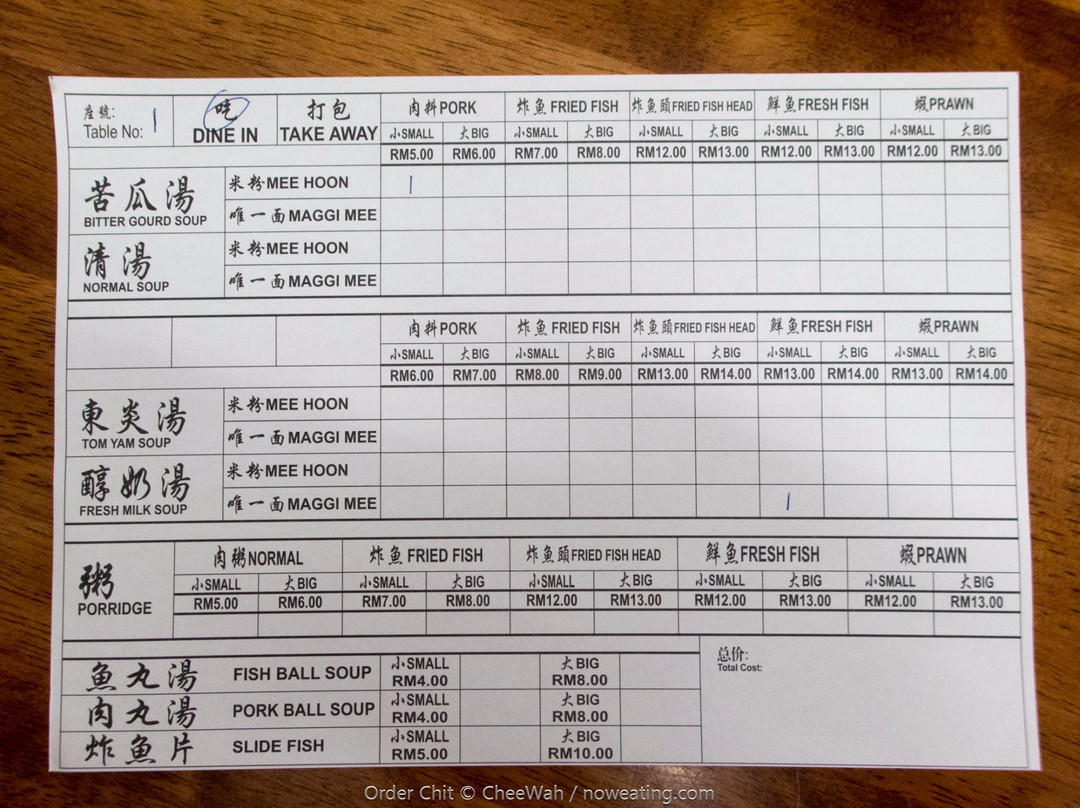 座號: 吃 打包 肉料PORK 炸魚FRIED FISH 炸魚頭FRIED FISH HEAD 鮮魚FRESH FISH 蝦PRAWN
Table No: 1 DINE IN TAKE AWAY 小SMALL 大BIG 小SMALL 大BIG 小SMALL 大BIG 小SMALL 大BIG 小SMALL 大BIG
RM5.00 RM6.00 RM7.00 RM8.00 RM12.00 RM13.00 RM12.00 RM13.00 RM12.00 RM13.00
苦瓜湯 米粉MEE HOON 1
BITTER GOURD SOUP 唯一面MAGGI MEE
清湯 米粉MEE HOON
NORMAL SOUP 唯一面MAGGI MEE
肉料PORK 炸魚FRIED FISH 炸魚頭FRIED FISH HEAD 鮮魚FRESH FISH 蝦PRAWN
小SMALL 大BIG 小SMALL 大BIG 小SMALL 大BIG 小SMALL 大BIG 小SMALL 大BIG
RM6.00 RM7.00 RM8.00 RM9.00 RM13.00 RM14.00 RM13.00 RM14.00 RM13.00 RM14.00
東炎湯 米粉MEE HOON
TOM YAM SOUP 唯一面MAGGI MEE
醇奶湯 米粉MEE HOON
FRESH MILK SOUP 唯一面MAGGI MEE 1
粥 肉粥NORMAL 炸魚FRIED FISH 炸魚頭FRIED FISH HEAD 鮮魚FRESH FISH 蝦PRAWN
小SMALL 大BIG 小SMALL 大BIG 小SMALL 大BIG 小SMALL 大BIG 小SMALL 大BIG
PORRIDGE RM5.00 RM6.00 RM7.00 RM8.00 RM12.00 RM13.00 RM12.00 RM13.00 RM12.00 RM13.00
魚丸湯 FISH BALL SOUP 小SMALL 大BIG 总价:
RM4.00 RM8.00 Total Cost:
肉丸湯 PORK BALL SOUP 小SMALL 大BIG
RM4.00 RM8.00
炸魚片 SLIDE FISH 小SMALL 大BIG
RM5.00 RM10.00
Order Chit © CheeWah / noweating.com